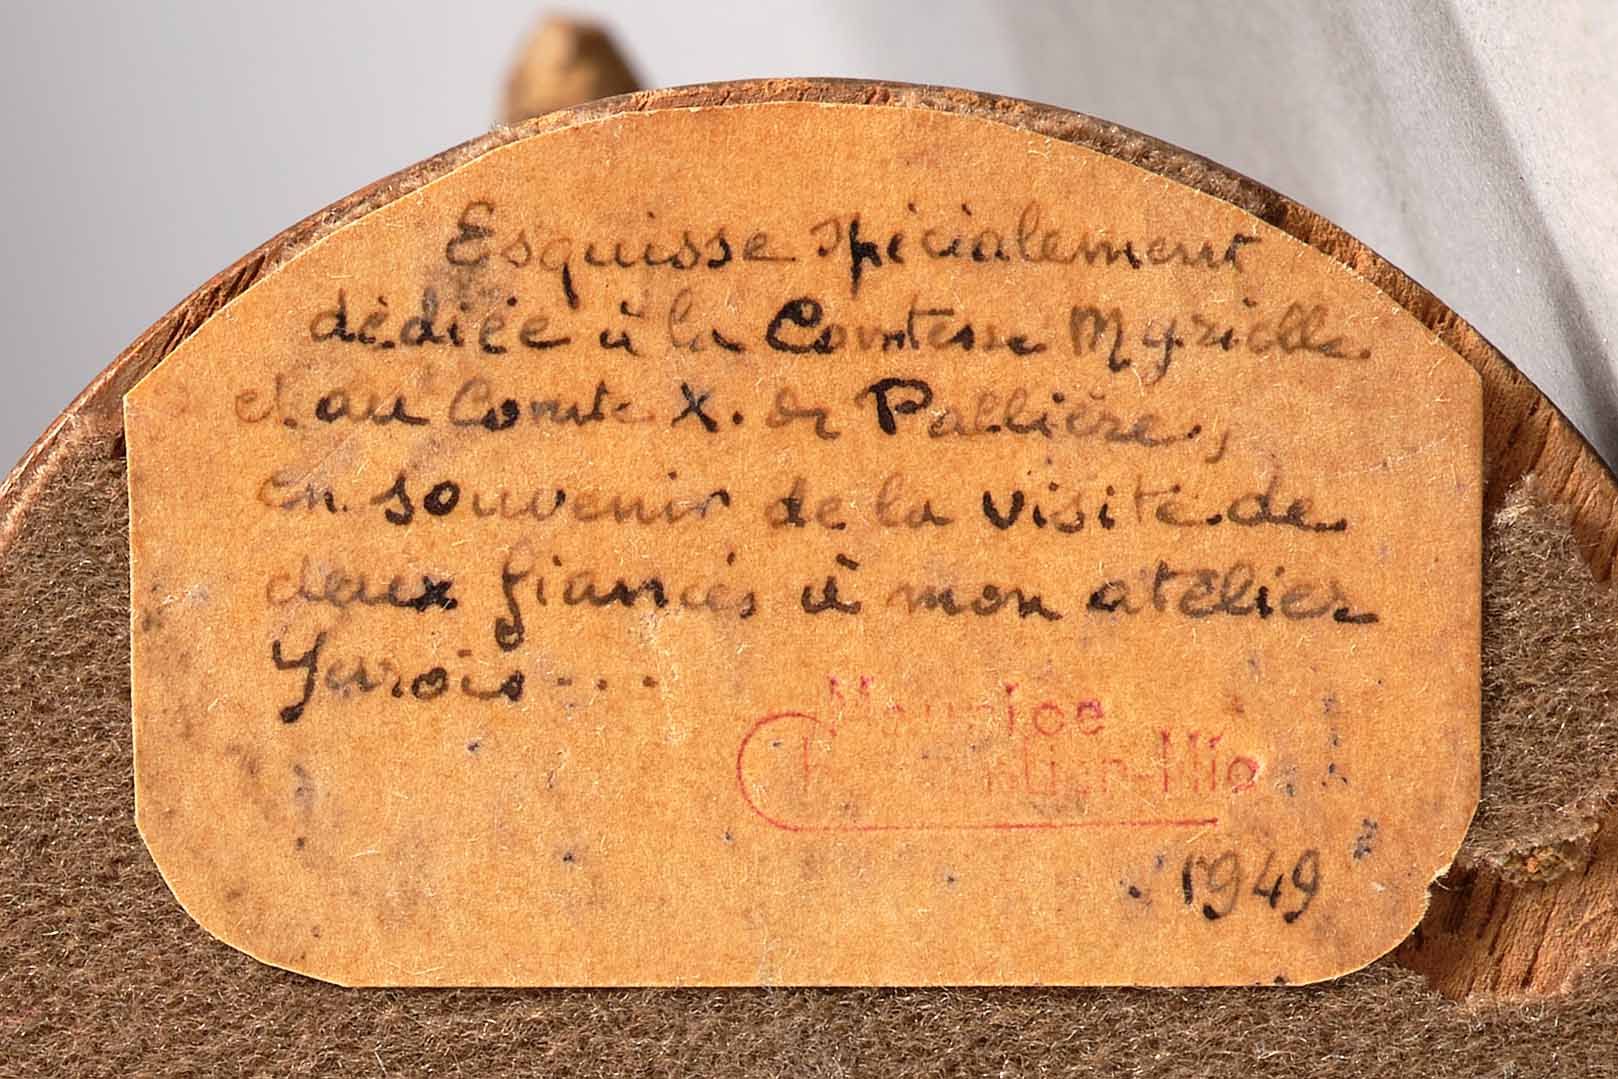 Esquisse spécialement
dédiée à la Comtesse Myrielle
et au Comte X. de Pallière,
en souvenir de la visite de
deux fiancés à mon atelier
Yerrois...
Maurice
1949